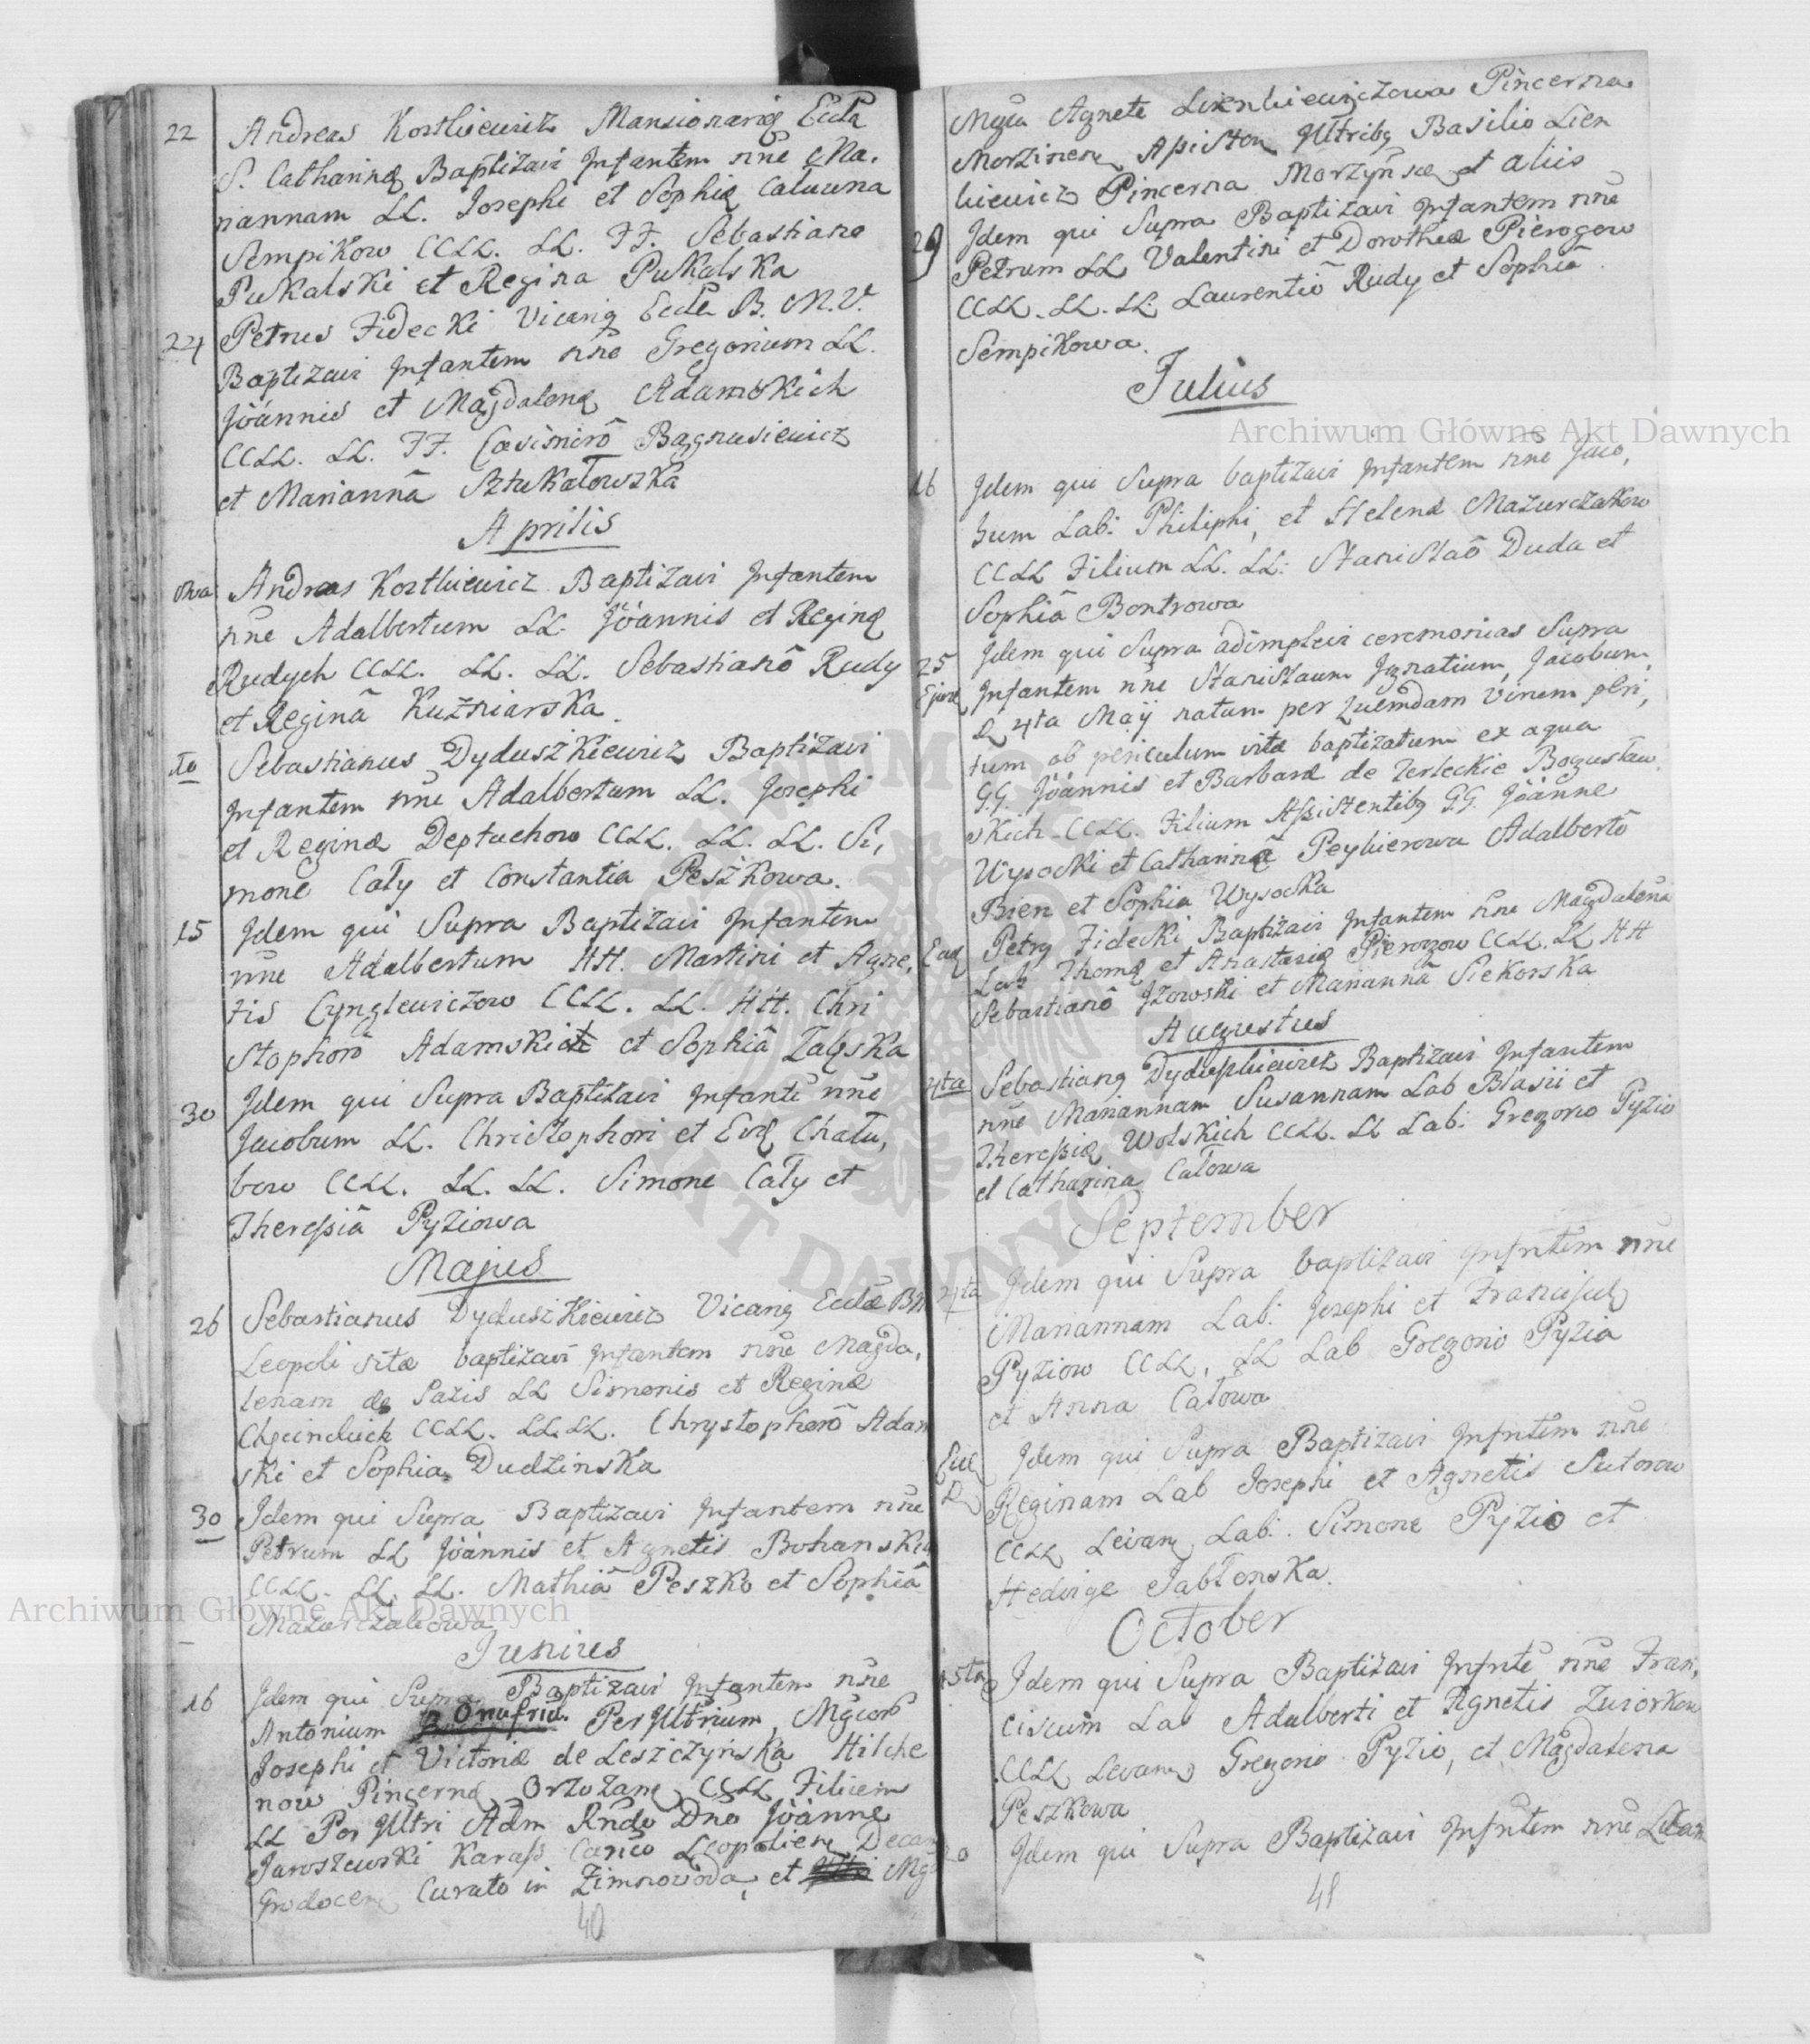 22 Andreas Kostkiewicz Mansionariꝯ Eccla
S. Catharinæ Baptizavi Infantem nne Ma,
riannam LL. Josephi et Sophiæ
Sempikow CCLL. LL. FF. Sebastiano
Pukalski et Regina Pukalska
24 Petrus Fidecki Vicariꝯ Eccla B. M. V.
Baptizavi Infantem nne Gregorium LL.
Joannis et Magdalenæ Adamskich
CCLL. LL. FF. Casimirô Bagnusiewicz
et Mariannâ Sztukatowszka
Aprilis
Andreas Kostkiewicz Baptizavi Infantem
nne Adalbertum LL. Joannis et Reginæ
Rudych CCLL. LL. LL. Sebastianô Rudy
et Reginâ Kuzniarska
10 Sebastianus Dyduszkiewicz Baptizavi
Infantem nne Adalbertum LL. Josephi
et Reginæ Deptuchow CCLL. LL. LL. Si,
mone Caty et Constantia Peszkowa.
15 Idem qui Supra Baptizavi Infantem
nne Adalbertum HH. Martini et Agne,
tis Cynglewiczow CCLL. LL. HH. Chri
stophorô Adamski et Sophiâ
30 Idem qui Supra Baptizavi Infante nne
Jacobum LL. Christophori et Evæ Chału,
bow CCLL. LL. LL. Simone Caty et
Theressiâ Pyziowa
Majus
26 Sebastianus Dyduszkiewicz Vicariꝯ Ecclæ BM
Leopoli sitæ baptizavi Infantem nne Magda,
lenam de Pazis LL Simonis et Reginæ
CCLL. LL. LL. Chrystophorô Adam
ski et Sophia Dudzinska
30 Idem qui Supra Baptizavi Infantem nne
Petrum LL Joannis et Agnetis
CCLL. LL. LL. Mathiâ Peszko et Sophiâ
Mazurczakowa
Junius
16 Idem qui Supra Baptizavi Infantem nne
Antonium Onufriū. Per Illtrium, Mgcorū
Josephi et Victoriæ de Leszczyńska Hilche
now Pincernæ CCLL Filium
LL Per Illtri Adm Rndo Dno Joanne
Jaroszewski Karass Canco Leopolien Decan
Grodocen Curato in Zimnowoda, et Mg
40
Mgca Agnete Lienkiewiczowa Pincerna
Morzinen Assisten Illtribꝯ Basilio Lien
kiewicz Pincerna et aliis
29 Idem qui Supra Baptizavi Infantem nne
Petrum LL Valentini et Dorotheæ Pierogow
CCLL. LL. LL. Laurentiô Rudy et Sophiâ
Sempikowa.
Julius
16 Idem qui Supra baptizavi Infantem nne Jaco,
bum Lab: Philiphi, et Helenæ Mazurczakow
CCLL Filium LL. LL: Stanislaô Duda et
Sophiâ Bontrowa
25 Idem qui Supra adimplevi ceremonias Supra
Ejusd Infantem nne Stanislaum Ignatium, Jacobum,
D 4ta Maÿ natum per quemdam Virum peri,
tum ob periculum vitæ baptizatum ex aqua
G.G. Joannis et Barbaræ de Terleckie Bogusław
skich CCLL. Filium Assistentibꝯ G.G. Joanne
Wysocki et Catharinâ Adalbertô
Bien et Sophia Wysocka
Ead Petrꝯ Fidecki Baptizavi Infantem nne Magdalena
Lab Thomæ et Anastasiæ Pierogow CCLL. LL HH
Sebastianô et Mariannâ Siekorska
Augustus
4ta Sebastianꝯ Dyduszkiewicz Baptizavi Infantem
nne Mariannam Susannam Lab Blasii et
Theressiæ Wolskich CCLL. LL Lab: Gregorio Pyzio
et Catharina Catowa
September
4ta Idem qui Supra baptizavi Infntem nne
Mariannam Lab: Josephi et Franciscæ
Pyziow CCLL, LL Lab Gregorio Pyzia
et Anna Catowa
Ead Idem qui Supra Baptizavi Infntem nne
D Reginam Lab Josephi et Agnetis Sutorow
CCLL Levan Lab: Simone Pyzio et
Hedvige Jabłonska.
October
15ta Idem qui Supra Baptizavi Infnte nne Fran,
ciscum Lab Adalberti et Agnetis
CCLL Levan Gregorio Pyzio, et Magdalena
Peszkowa
20 Idem qui Supra Baptizavi Infntem nne
41
Archiwum Główne Akt Dawnych
Archiwum Główne Akt Dawnych